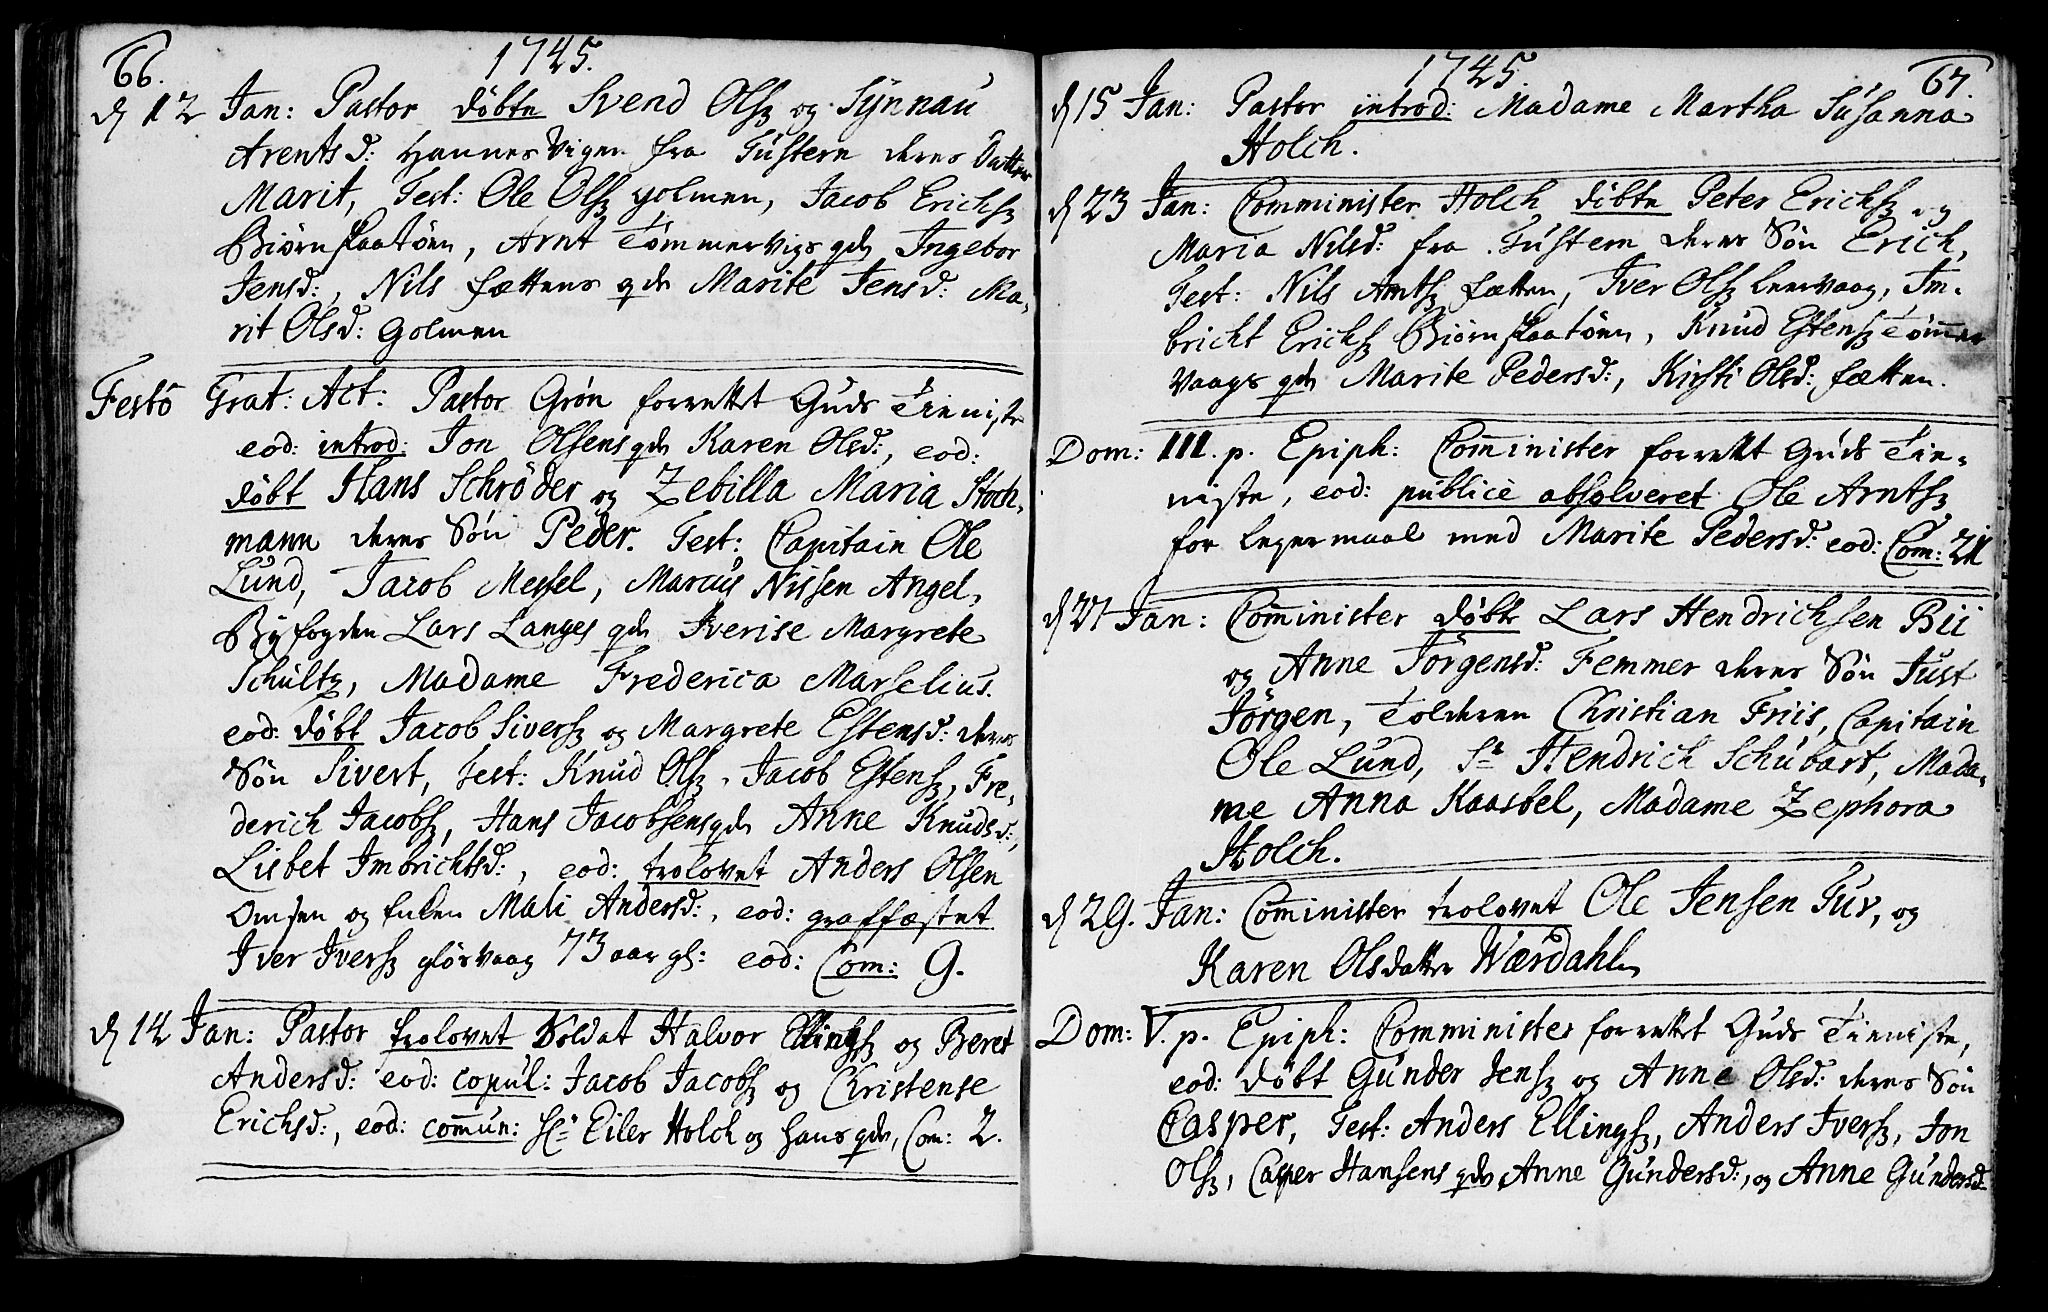 66.
1745.
d 12 Jan: Pastor døbte Svend Olss og Synnau
Arentsd: Hannes Vigen fra Tustern deres Datter
Marit, Test: Ole Olss golmen, Jacob Erichss
Biørnskaatøen, Arnt Tømmervigs qde Ingebor
Jensd:, Nils Fættens qde Marite Jensd: Ma-
rit Olsd: Golmen
Festo Grat: Act: Pastor Grøn forrettet Guds Tieniste
eod: introd: Jon Olsens qde Karen Olsd:, eod:
døbt Hans Schrøder og Zebilla Maria Stoch-
mann deres Søn Peder. Test: Capitain Ole
Lund, Jacob Messel, Marcus Nissen Angel,
Byfogden Lars Langes qde Iverise Margrete
Schultz, Madame Frederica Marselius.
eod: døbt Jacob Siverss og Margrete Estensd: deres
Søn Sivert, Test: Knud Olss, Jacob Estenss, Fre-
derich Jacobss, Hans Jacobsens qde Anne Knudsd:,
Lisbet Imbrichtsd:, eod: trolovet Anders Olsen
Omsen og Enken Mali Andersd:, eod: graffæstet
Iver Iverss glösvaag 73 aar gl: eod: Com: 9.
d 14 Jan: Pastor trolovet Soldat Halvor Ellingss og Beret
Andersd: eod: copul: Jacob Jacobss og Christense
Erichsd:, eod: commun: Sr Eiler Holch og hans qde, Com: 2.
1745.
67.
d 15 Jan: Pastor introd: Madame Martha Susanna
Holch.
d 23 Jan: Comminister Holch døbte Peter Erichss og
Maria Nilsd: fra Tustern deres Søn Erich,
Test: Nils Arntss Fætten, Iver Olss Leervaag, Im-
bricht Erichss Biørnskaatøen, Knud Estenss Tømmer
vaags qde Marite Pedersd:, Kirsti Olsd: Fætten.
Dom: III. p. Epiph: Comminister forrettet Guds Tie-
niste, eod: publicè absolveret Ole Arntss
for legermaal med Marite Pedersd: eod: Com: 21
d 27 Jan: Comminister døbte Lars Hendrichsen Bii
og Anne Jörgensd: Femmer deres Søn Just
Jörgen, Tolderen Christian Friis, Capitain
Ole Lund, Sr Hendrich Schubart, Mada-
me Anna Kaasbøl, Madame Zephora
Holch.
d 29. Jan: Comminister trolovet Ole Jensen Fur, og
Karen Olsdatter Wærdahl
Dom: V. p. Epiph: Comminister forrettet Guds Tieniste,
eod: døbt Gunder Jenss og Anne Olsd: deres Søn
Casper, Test: Anders Ellingss, Anders Iverss, Jon
Olss, Casper Hansens qde Anne Gundersd:, og Anne Gundersd: